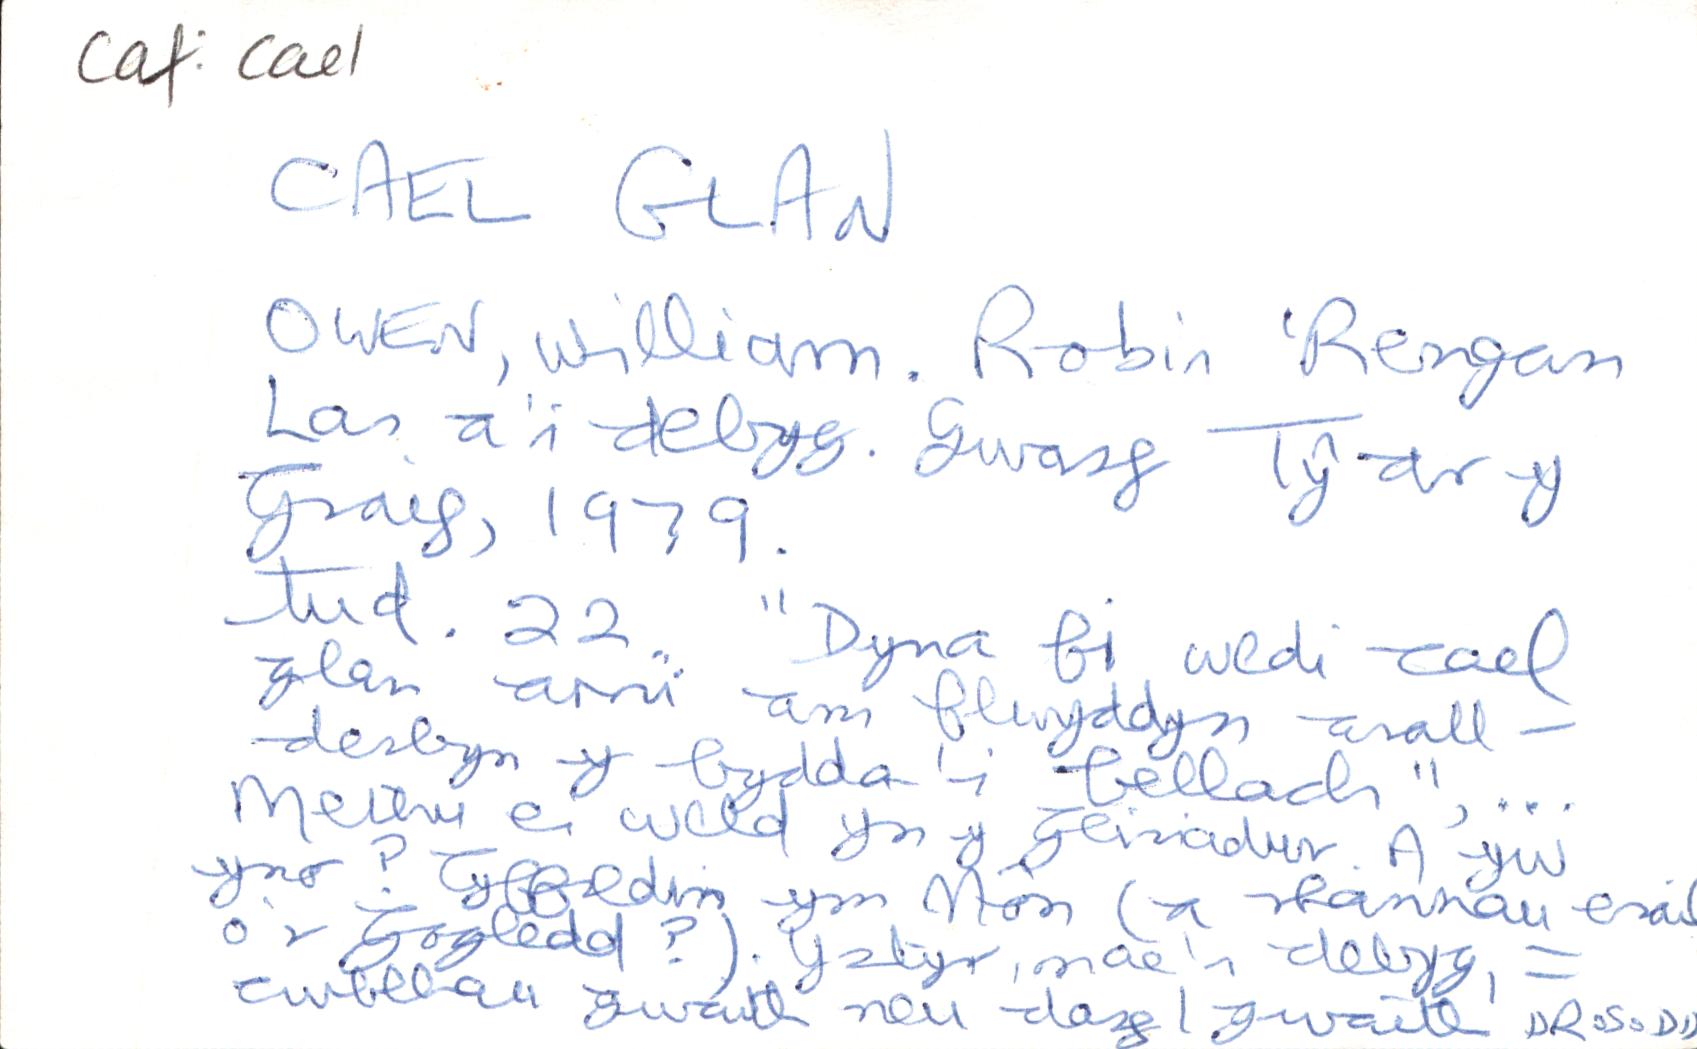 Caf: cael
CAEL GLAN
OWEN, William. Robin 'Rengan
Las a'i debyg. Gwasg Tŷ ar y
Graig, 1979.
tud. 22. "Dyna fi wedi cael
glan arni am flwyddyn arall –
derbyn y bydda'i bellach", ...
Methu ei weld yn y Geiriadur. A yw
yno? Cyffredin ym Môn (a rhannau erail
o'r Gogledd?). Ystyr, mae'n debyg, =
cwblhau gwaith neu dasg / gwaith DROSODD